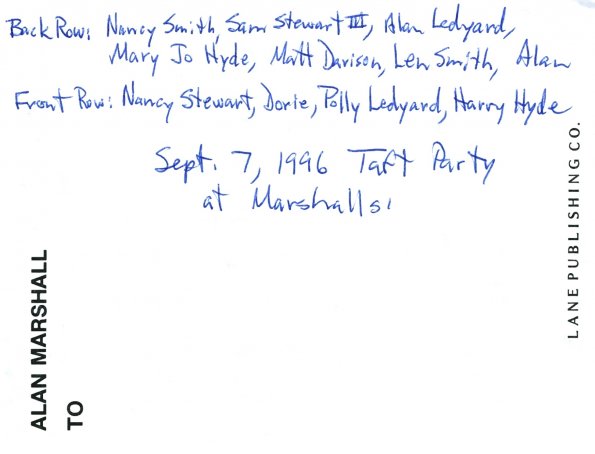 Back Row: Nancy Smith, Sam Stewart III, Alan Ledyard,
Mary Jo Hyde, Matt Davison, Len Smith, Alan
Front Row: Nancy Stewart, Dorie, Polly Ledyard, Harry Hyde
Sept. 7, 1996 Taft Party
at Marshalls'
ALAN MARSHALL
TO
LANE PUBLISHING CO.